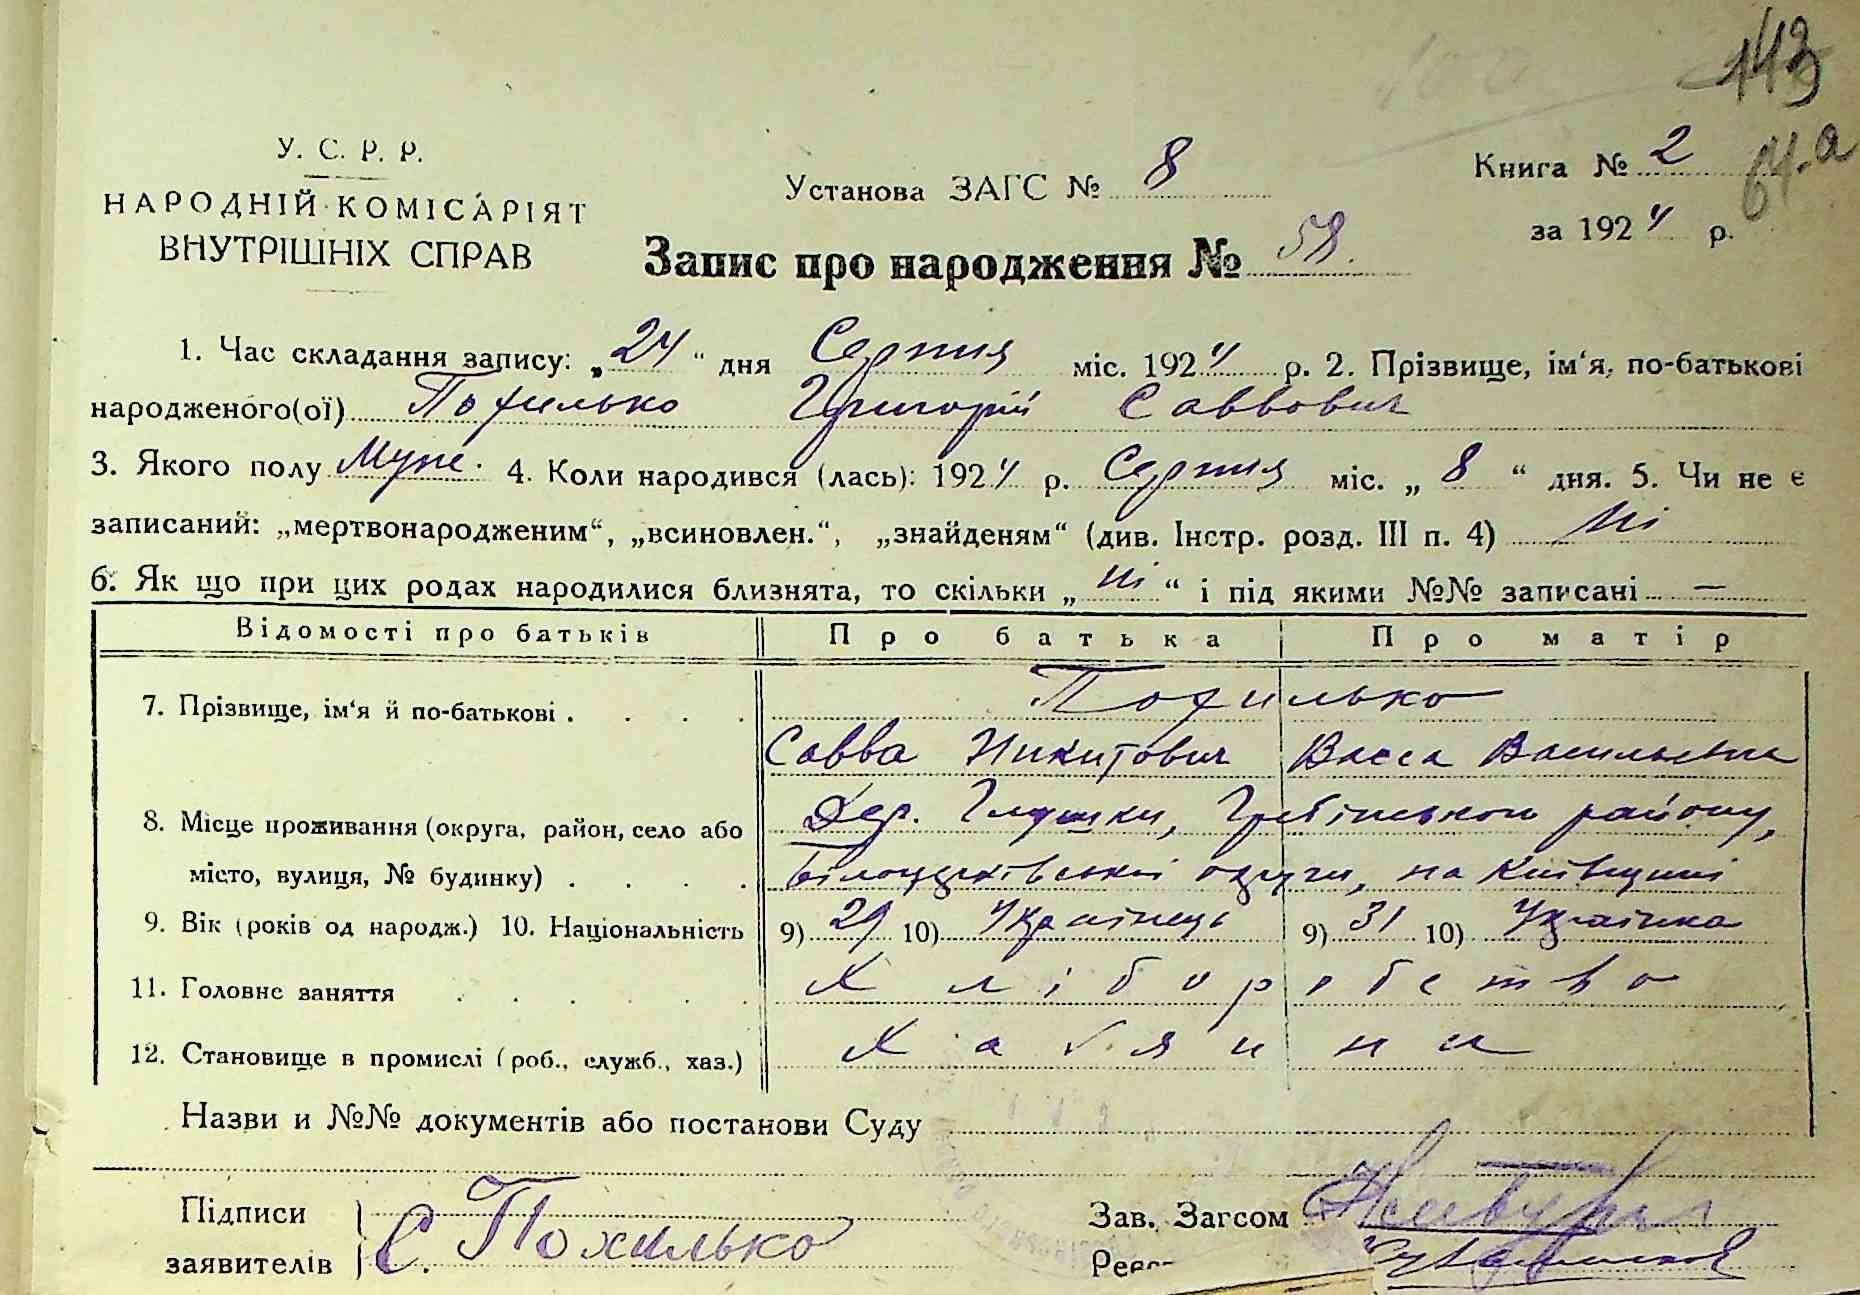 113
64-а
У. С. Р. Р.
НАРОДНІЙ КОМІСАРІЯТ
ВНУТРІШНІХ СПРАВ
Установа ЗАГС № 8
Книга № 2
за 1924 р.
Запис про народження № 58.
1. Час складання запису: „24“ дня Серпня міс. 1924 р. 2. Прізвище, ім‘я, по-батькові
народженого(ої) Похилько Григорій Саввович
3. Якого полу Муже. 4. Коли народився (лась): 1924 р. Серпня міс. „8“ дня. 5. Чи не є
записаний: „мертвонародженим“, „всиновлен.“, „знайденям“ (див. Інстр. розд. III п. 4) Ні
6. Як що при цих родах народилися близнята, то скільки „ні“ і під якими №№ записані —
Відомості про батьків Про батька Про матір
7. Прізвище, ім‘я й по-батькові . . . . Похилько
Савва Никитович Васса Васильевна
8. Місце проживання (округа, район, село або Дер. Глушки, Гребінського району,
місто, вулиця, № будинку) . . . . Білоцерківської округи, на Київщині
9. Вік (років од народж.) 10. Національність 9) 29 10) Українець 9) 31 10) Українка
11. Головне заняття . . . . . Хліборобство
12. Становище в промислі (роб., служб., хаз.) Хазяини
Назви и №№ документів або постанови Суду
Підписи
заявителів С. Похилько
Зав. Загсом
Реєс